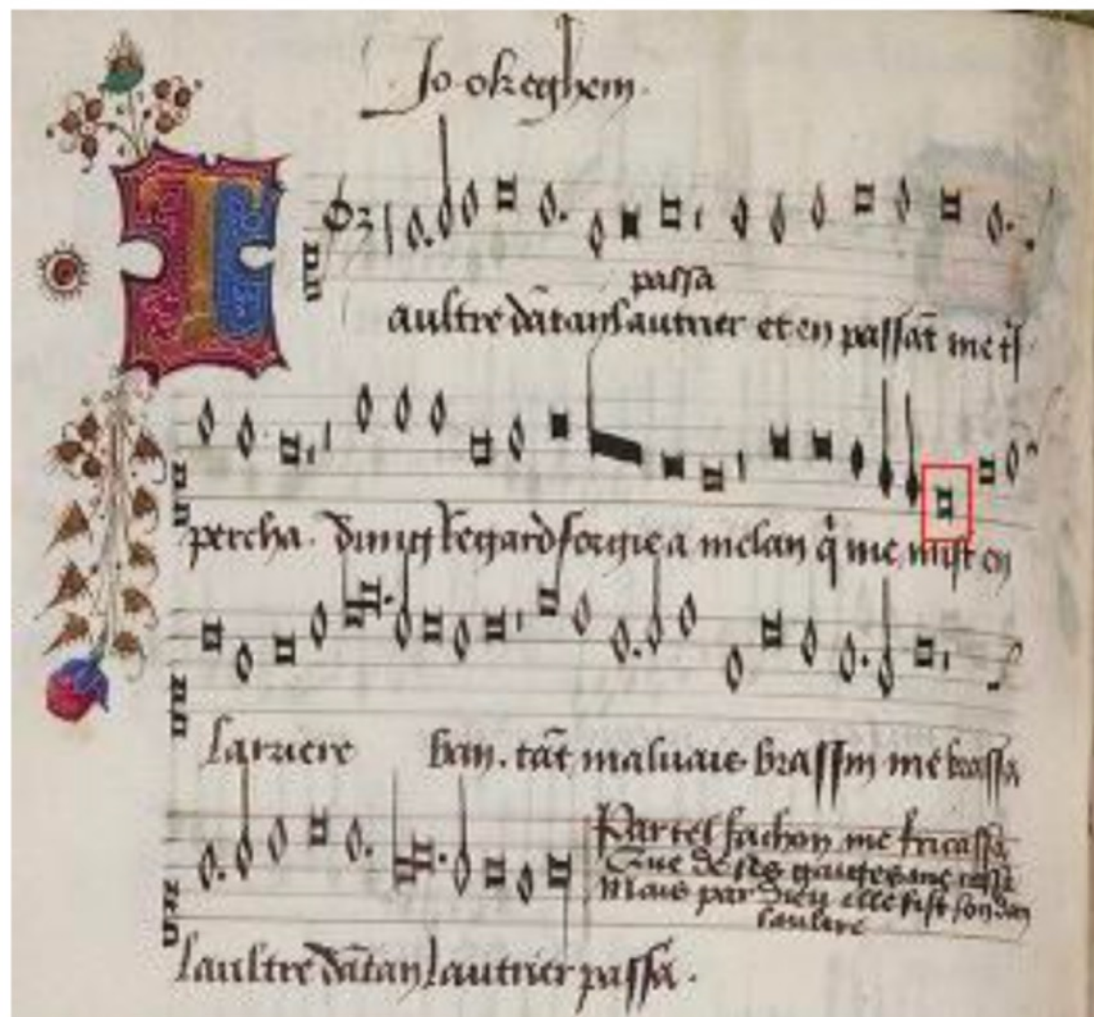 Jo. okeghem.
passa
aultre dātan lautrier et en passāt me t̄s
percha. dung regard forgie a melan q̄ me mist en
larriere ban. tāt maluais brassin me brassa
Par tel fachon me fricassa
Que de ses gauges me cassa
Mais par dieu elle fist son dan
laultre
laultre dātan lautrier passa.